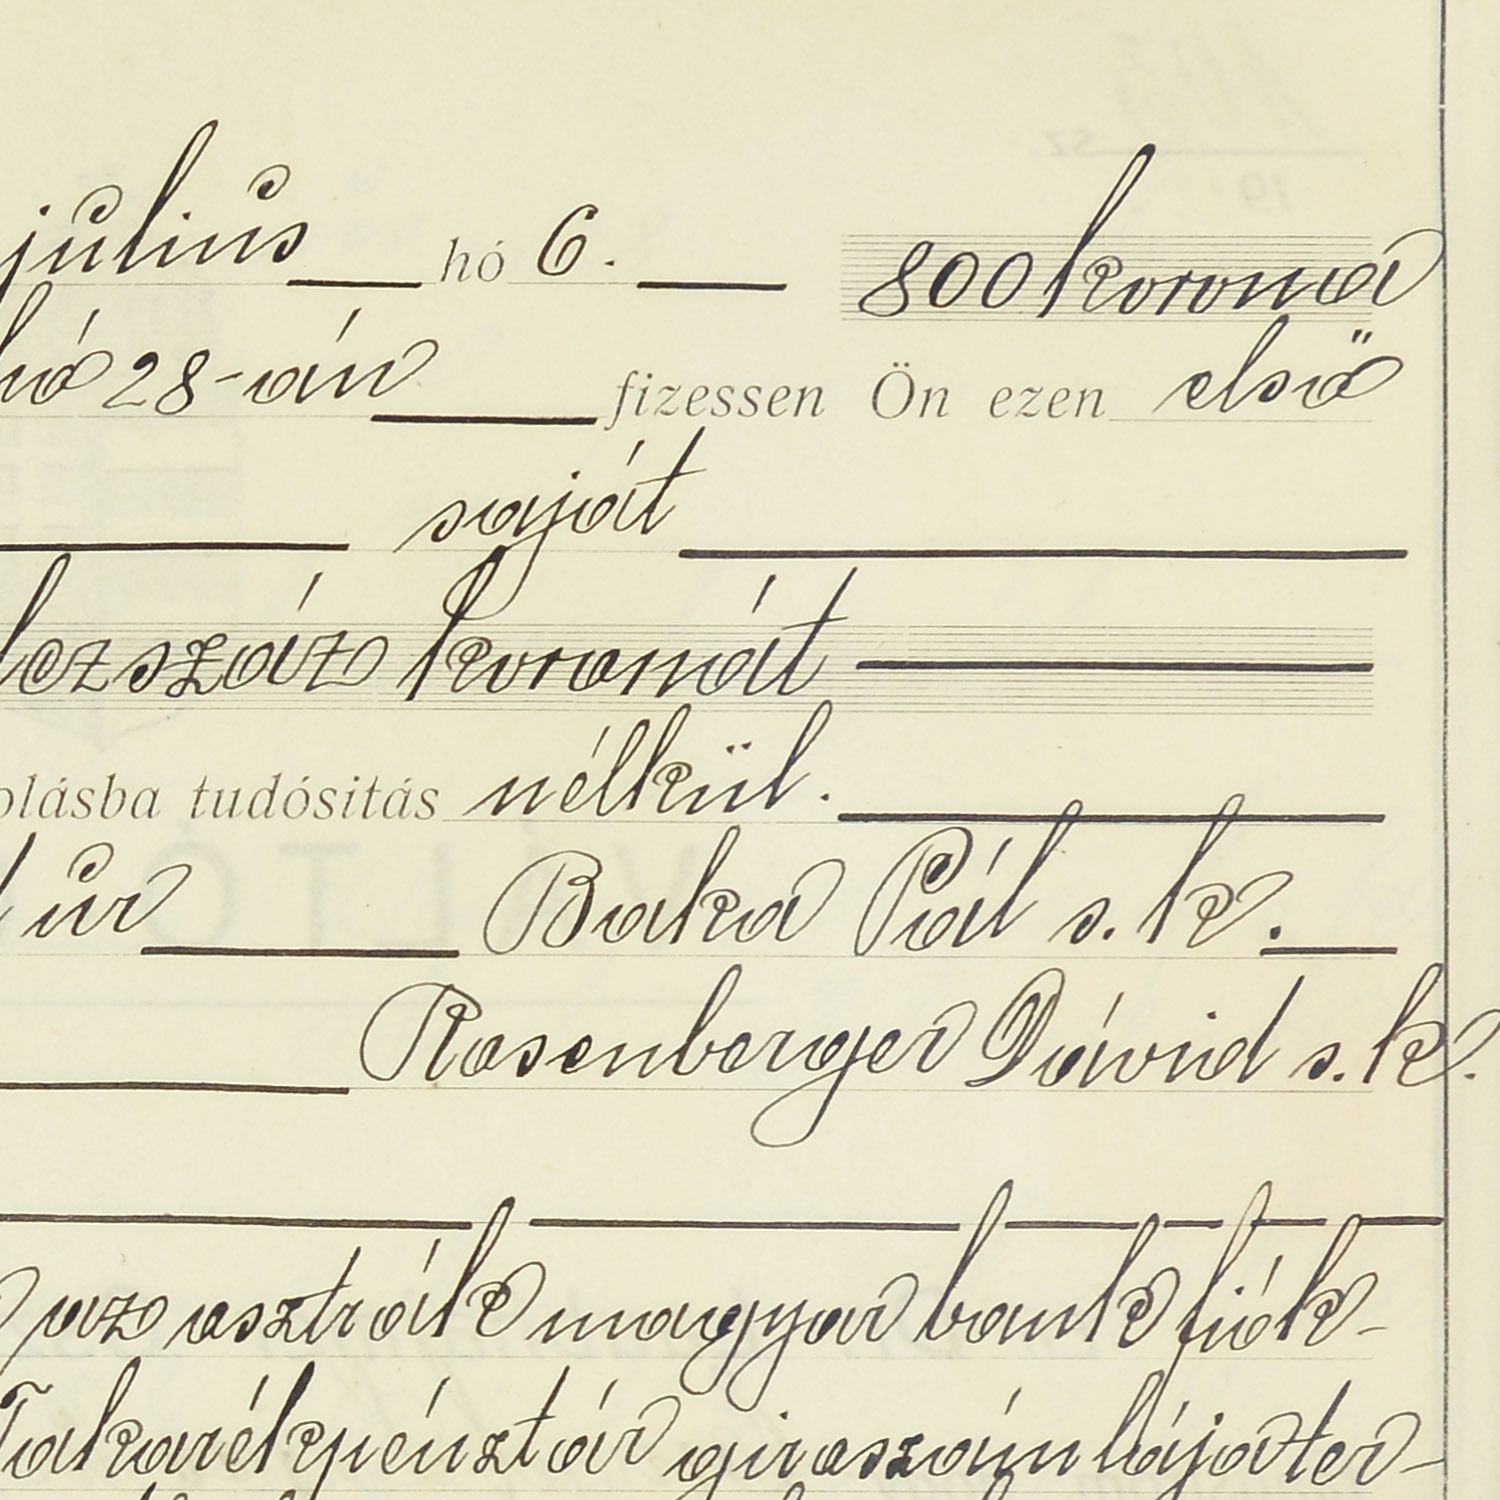 július hó 6. 800 korona
hó 28-án fizessen Ön ezen első
saját
száz koronát
tudósitás nélkül.
úr Baka Pál s. k.
Rosenberger Dávid s. k.
az osztrák magyar bank fiók-
Takarékpénztár giroszámlájá ter-